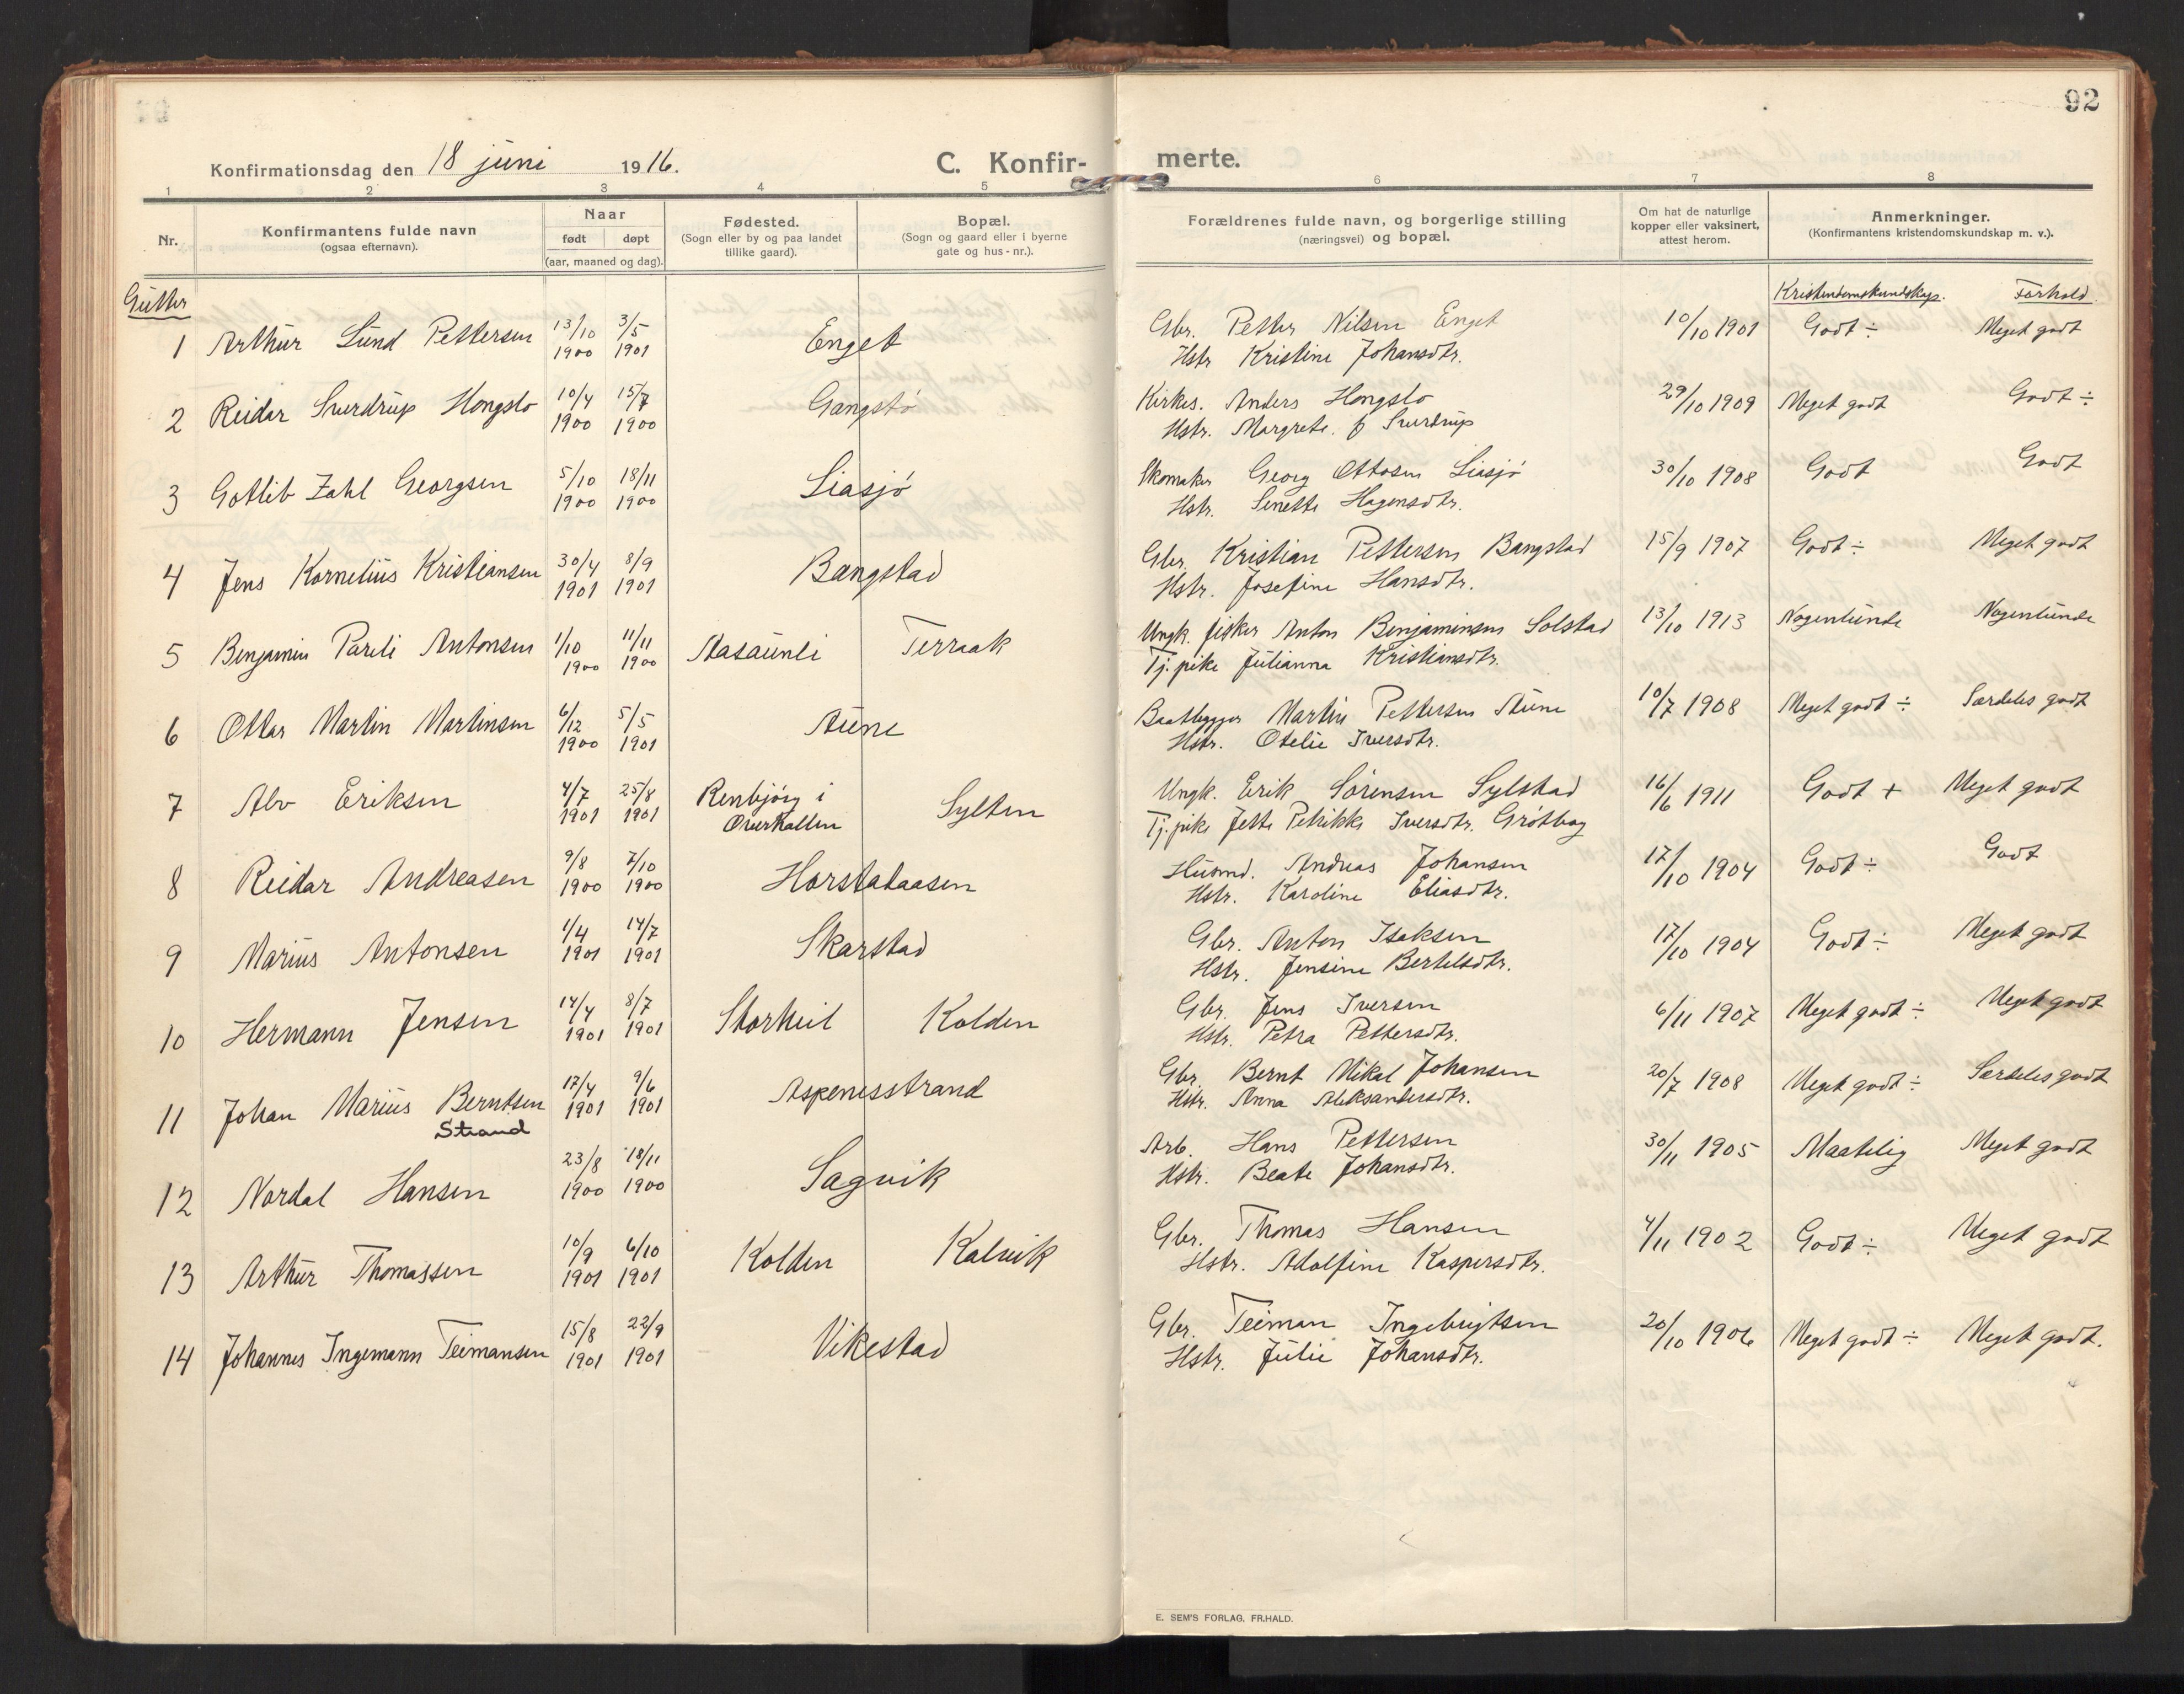 92
Konfirmationsdag den 18 juni 1916.
C. Konfir-
merte.
1 2 3 4 5 6 7 8
Nr.
Konfirmantens fulde navn
(ogsaa efternavn).
Naar
født døpt
(aar, maaned og dag).
Fødested.
(Sogn eller by og paa landet
tillike gaard).
Bopæl.
(Sogn og gaard eller i byerne
gate og hus-nr.).
Forældrenes fulde navn, og borgerlige stilling
(næringsvei) og bopæl.
Om hat de naturlige
kopper eller vaksinert,
attest herom.
Anmerkninger.
(Konfirmantens kristendomskundskap m. v.).
Gutter
Kristendomskundskap. Forhold.
1 Arthur Lund Pettersen 13/10 1900 3/5 1901 Enget
Gbr. Petter Nilsen Enget
Hstr Kristine Johansdtr.
10/10 1901 Godt ÷ Meget godt
2 Reidar Sverdrup Hongslo 10/4 1900 15/7 1900 Gangstø
Kirkes. Anders Hongslo
Hstr. Margrete f. Sverdrup
29/10 1909 Meget godt Godt ÷
3 Gotlib Zahl Georgsen 5/10 1900 18/11 1900 Liasjø
Skomaker Georg Ottosen Liasjø
Hstr. Senette Hagensdtr.
30/10 1908 Godt Godt
4 Jens Kornelius Kristiansen 30/4 1901 8/9 1901 Bangstad
Gbr. Kristian Pettersen Bangstad
Hstr. Josefine Hansdtr.
15/9 1907 Godt ÷ Meget godt
5 Benjamin Pareli Antonsen 1/10 1900 11/11 1900 Aasaunli Terraak
Ungk. fisker Anton Benjaminsen Solstad
Tj.pike Julianna Kristiansdtr.
13/10 1913 Nogenlunde Nogenlunde
6 Ottar Martin Martinsen 6/12 1900 5/5 1901 Aune
Baatbygger Martin Pettersen Aune
Hstr. Otelie Iversdtr.
10/7 1908 Meget godt ÷ Særdeles godt
7 Alv Eriksen 4/7 1901 25/8 1901 Renbjørg i Overhallen Sylten
Ungk. Erik Sørensen Sylstad
Tj.pike Jette Petrikke Iversdtr. Grøtbog
16/6 1911 Godt + Meget godt
8 Reidar Andreasen 9/8 1900 7/10 1900 Horstadaasen
Husmd. Andreas Johansen
Hstr. Karoline Eliasdtr.
17/10 1904 Godt ÷ Godt
9 Marius Antonsen 1/4 1901 14/7 1901 Skarstad
Gbr. Anton Isaksen
Hstr. Jensine Bertelsdtr.
17/10 1904 Godt ÷ Meget godt
10 Hermann Jensen 14/4 1901 8/7 1901 Storheil Kolden
Gbr. Jens Iversen
Hstr. Petra Pettersdtr.
6/11 1907 Meget godt ÷ Meget godt
11 Johan Marius Berntsen 17/4 1901 9/6 1901 Aspenesstrand
Strand
Gbr. Bernt Mikal Johansen
Hstr. Anna Aleksandersdtr.
20/7 1908 Meget godt ÷ Særdeles godt
12 Nordal Hansen 23/8 1900 18/11 1900 Sagvik
Arb. Hans Pettersen
Hstr. Beate Johansdtr.
30/11 1905 Maatelig Meget godt
13 Arthur Thomassen 10/9 1901 6/10 1901 Kolden Kalvik
Gbr. Thomas Hansen
Hstr. Adolfine Kaspersdtr.
4/11 1902 Godt ÷ Meget godt
14 Johannes Ingemann Teimansen 15/8 1901 22/9 1901 Vikestad
Gbr. Teiman Ingebrigtsen
Hstr. Julie Johansdtr.
20/10 1906 Meget godt ÷ Meget godt.
E. SEM'S FORLAG, FR.HALD.